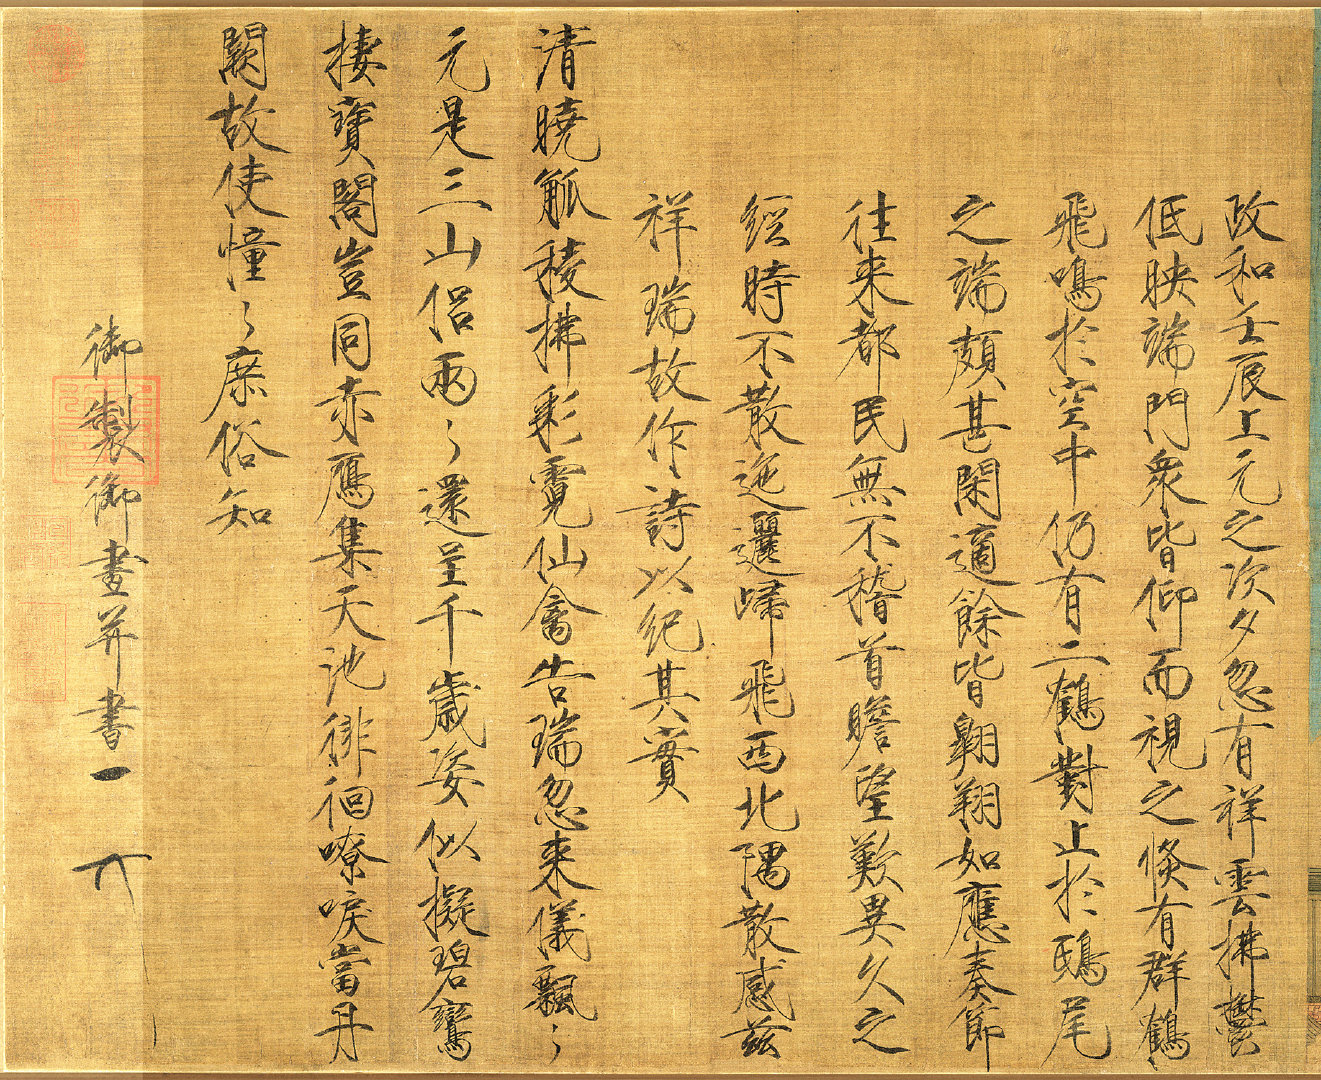 政和壬辰上元之次夕忽有祥雲拂鬱
低映端門衆皆仰而視之倐有群鶴
飛鳴於空中仍有二鶴對止於鴟尾
之端頗甚閑適餘皆翺翔如應奏節
往來都民無不稽首瞻望歎異久之
經時不散迤邐歸飛西北隅散感茲
祥瑞故作詩以紀其實
清曉觚稜拂彩霓仙禽告瑞忽来儀飄〻
元是三山侣兩〻還呈千歳姿似擬碧鸞
棲寳閣豈同赤鴈集天池徘徊嘹唳當丹
闕故使憧〻庶俗知
御製御畫并書